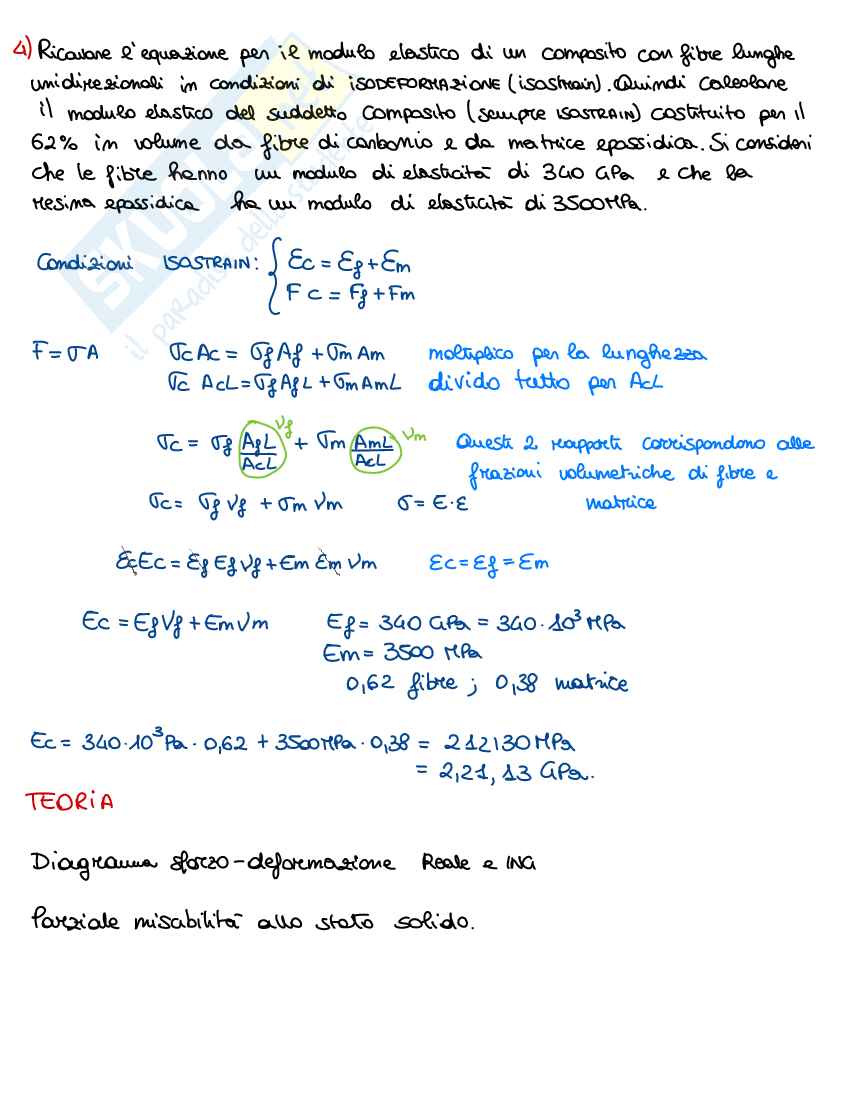 4) Ricavare l'equazione per il modulo elastico di un composito con fibre lunghe
unidirezionali in condizioni di ISODEFORMAZIONE (isostrain). Quindi calcolare
il modulo elastico del suddetto composito (sempre ISOSTRAIN) costituito per il
62% in volume da fibre di carbonio e da matrice epossidica. Si consideri
che le fibre hanno un modulo di elasticità di 340 GPa e che la
resina epossidica ha un modulo di elasticità di 3500 MPa.
Condizioni ISOSTRAIN: { Ɛc = Ɛf + Ɛm
Fc = Ff + Fm
F = σA σc Ac = σf Af + σm Am moltiplico per la lunghezza
σc AcL = σf AfL + σm AmL divido tutto per AcL
σc = σf AfL/AcL Vf + σm AmL/AcL Vm Questi 2 rapporti corrispondono alle
frazioni volumetriche di fibre e
σc = σf Vf + σm Vm σ = E·Ɛ matrice
Ɛc Ec = Ɛf Ef Vf + Em Ɛm Vm Ɛc = Ɛf = Ɛm
Ec = Ef Vf + Em Vm Ef = 340 GPa = 340·10³ MPa
Em = 3500 MPa
0,62 fibre ; 0,38 matrice
Ec = 340·10³ Pa · 0,62 + 3500 MPa · 0,38 = 212130 MPa
= 2,21, 13 GPa.
TEORIA
Diagramma sforzo-deformazione Reale e ING
Parziale misabilità allo stato solido.
SKUOLA.net
il paradiso dello studente